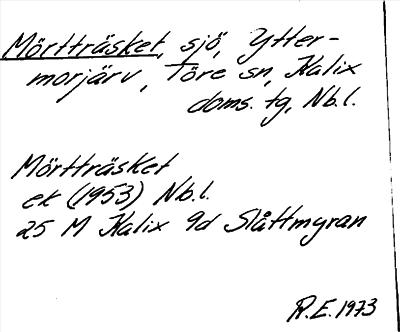 Mörtträsket, sjö, Ytter-
morjärv, Töre sn, Kalix
doms. tg, Nb.l.
Mörtträsket
ek (1953) Nb.l.
25 M Kalix 9d Slåttmyran
R.E. 1973